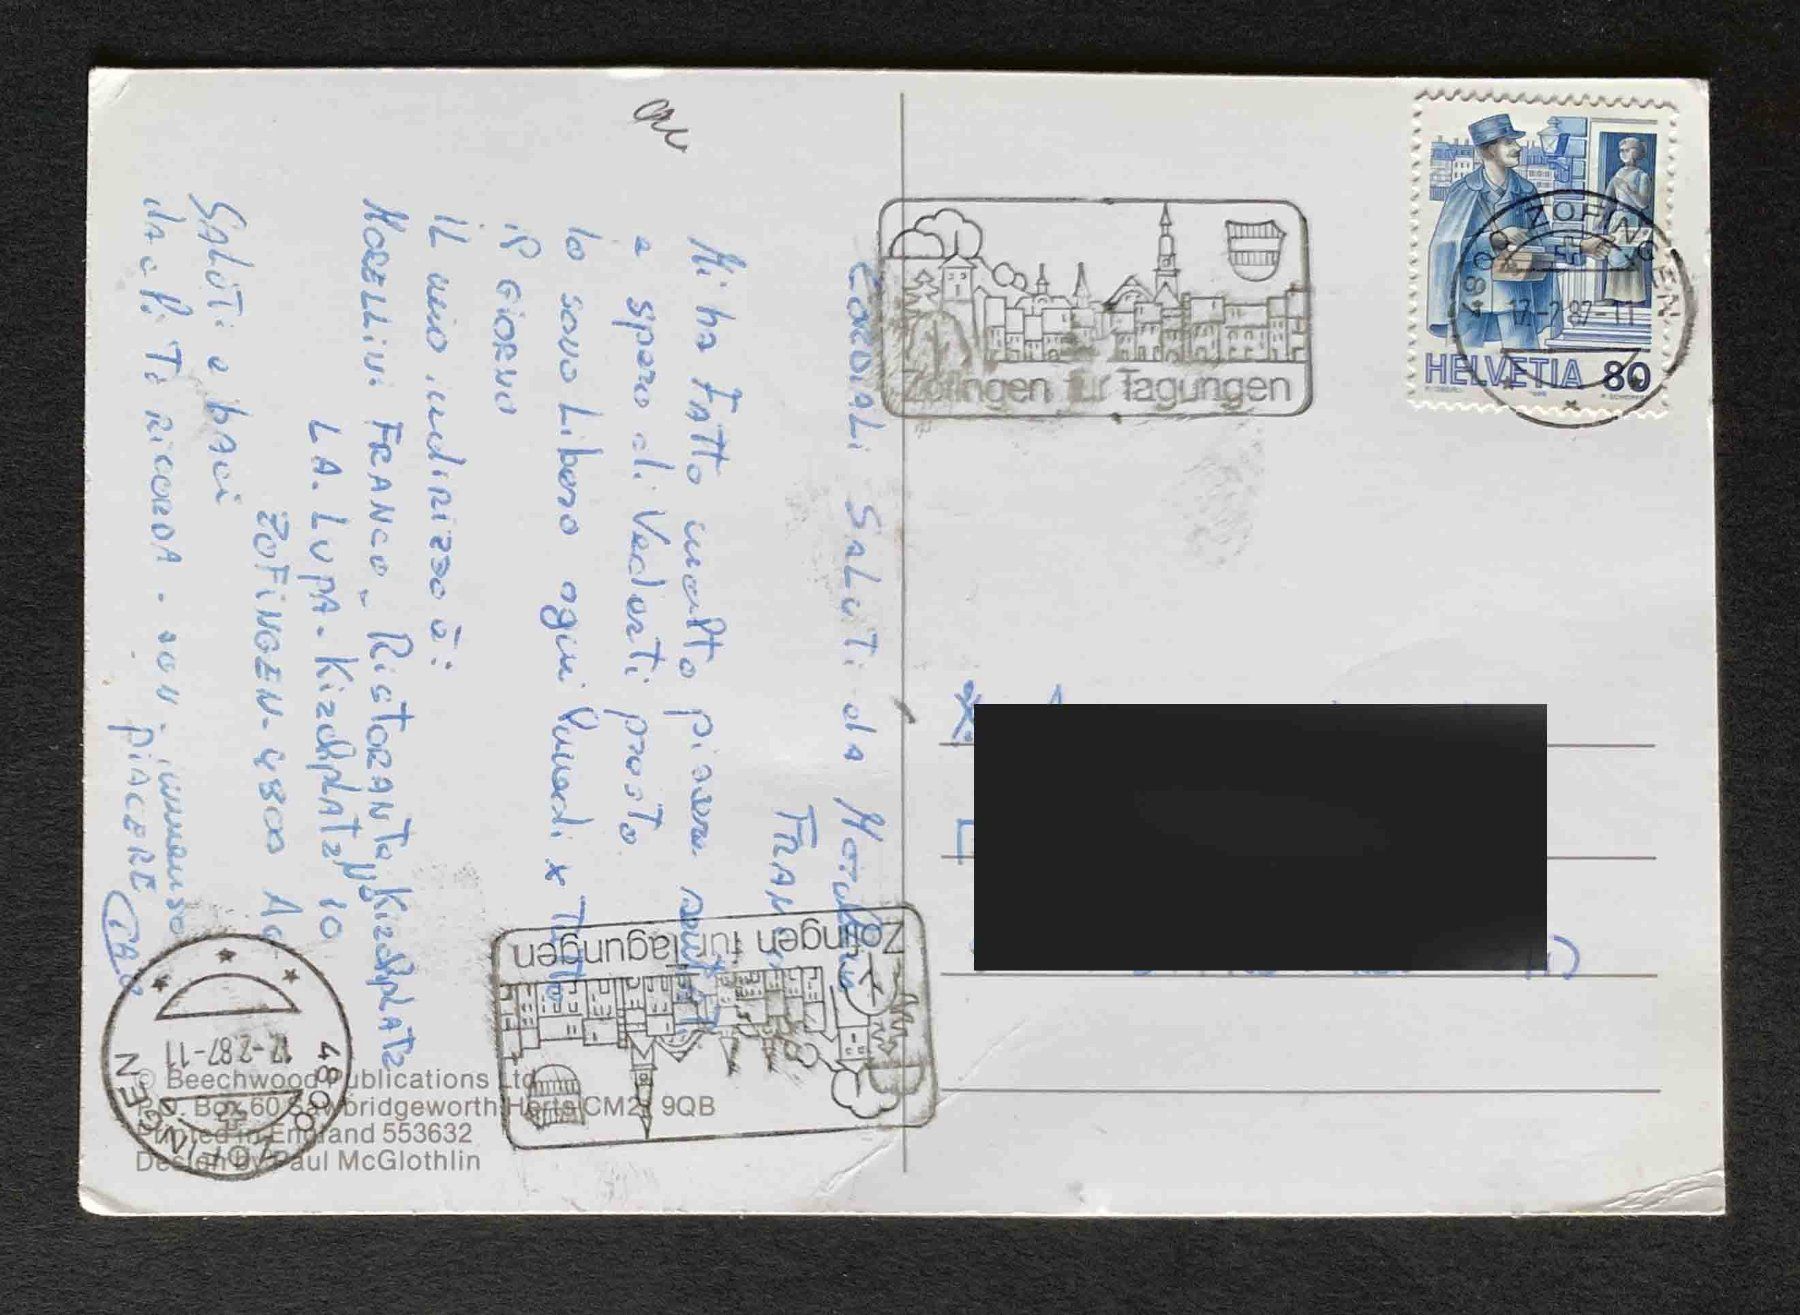 Cordiali Saluti da
Franco
Mi ha Fatto molto piacere
e spero di Vederti presto
Io sono Libero ogni Lunedi x Tutto
il Giorno
il mio indirizzo è:
Morellini Franco, Ristorante Kirchplatz
LA. LUPA. Kirchplatz 10
ZOFINGEN. 4800 AG
Saluti e baci
da chi Ti ricorda. con immenso
piACERE
CIAO
Zofingen für Tagungen
4800 ZOFINGEN
17.-2.87-11
HELVETIA 80
Zofingen für Tagungen
4800 ZOFINGEN
17.-2.87-11
© Beechwood Publications Ltd
P.O. Box 60 Sawbridgeworth Herts CM21 9QB
Printed in England 553632
Design by Paul McGlothlin